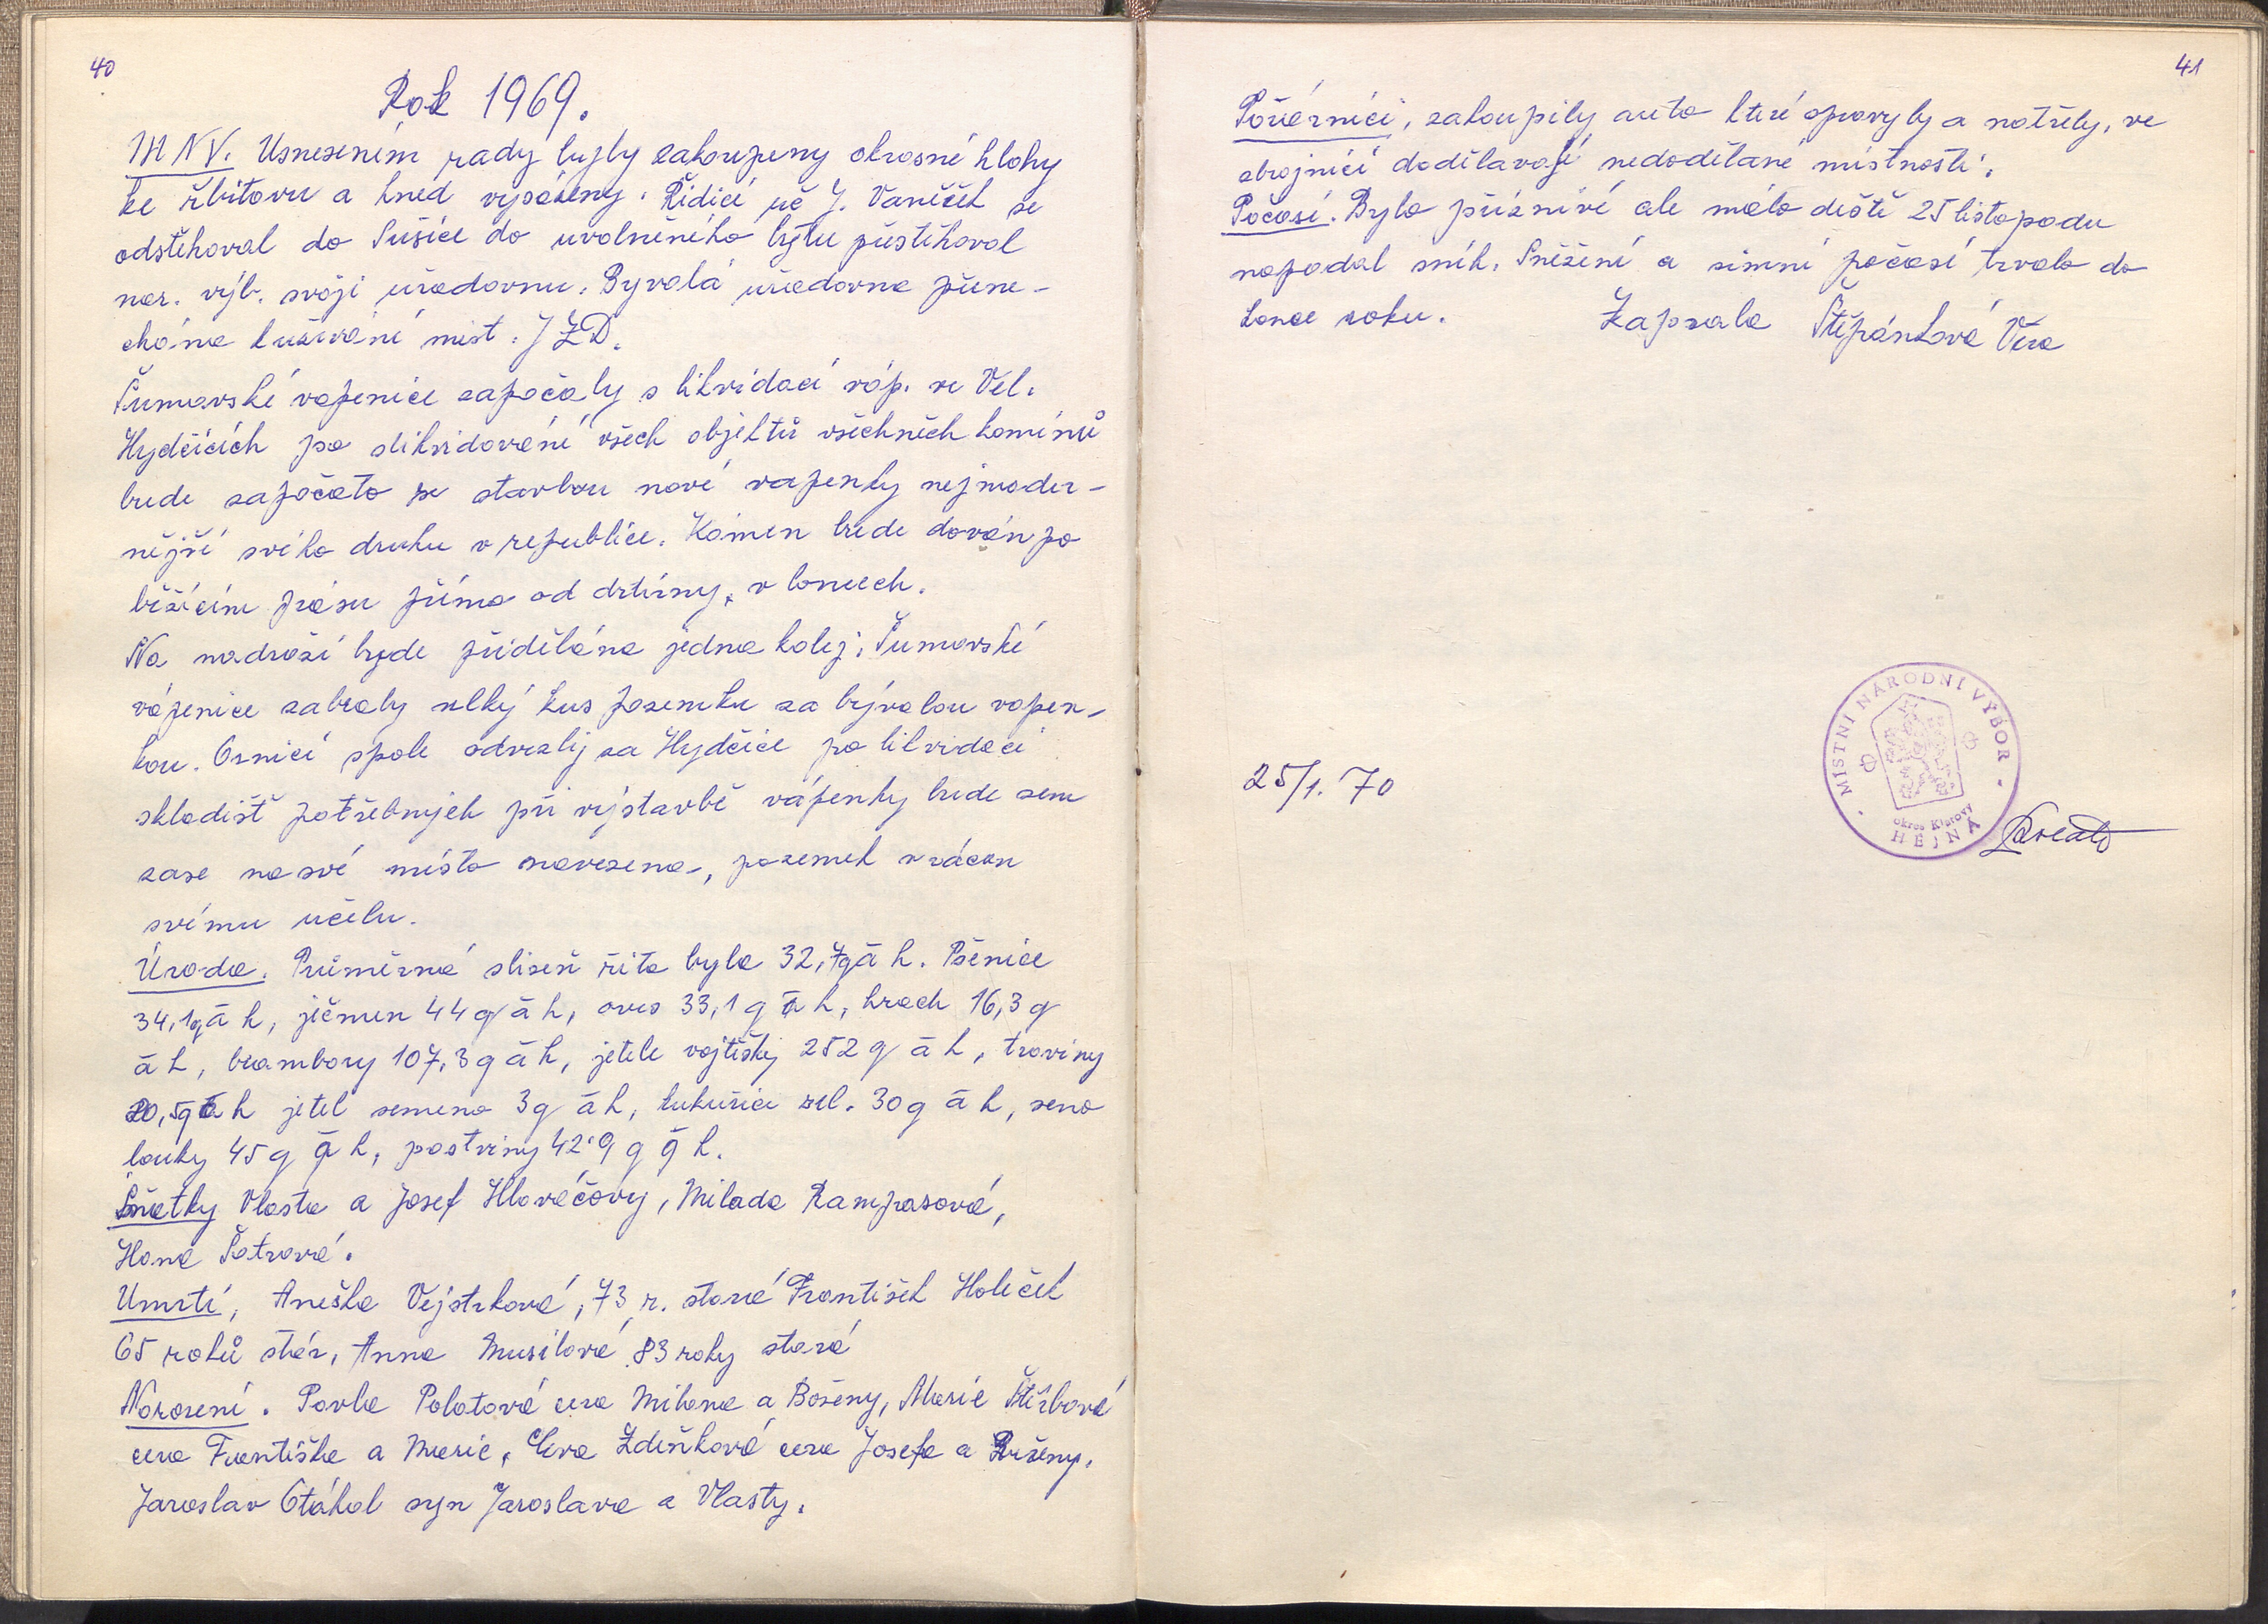 40
Rok 1969.
MNV. Usnesením rady byly zakoupeny okrasné hlohy
ke hřbitovu a hned vysázeny. Řidící uč J. Vaníček se
odstěhoval do Sušice do uvolněného bytu přestěhoval
nar. výb. svoji uřadovnu. Byvalá uřadovna přene-
chána k užívání míst. JZD.
Šumavské vapenice započaly s likvidací váp. ve Vel.
Hydčicích po slikvidování všech objektů všechněch komínů
bude započato se stavbou nové vapenky nejmoder-
nější svého druhu v republice. Kámen bude dován po
běžícím pásu přímo od drtírny, v lomech.
Na nadraží bude přidělána jedna kolej. Šumavské
vápenice zabraly velký kus pozemku za bývalou vapen-
kou. Ornici spole odvezly za Hydčice po likvidaci
skladišť potřebných při výstavbě vápenky bude sem
zase na své místo navezena, pozemek vrácen
svému učelu.
Úroda. Průměrná sklizeň žita byla 32,7q á h. Pšenice
34,1q á h, ječmen 44 q á h, oves 33,1 q á h, hrach 16,3 q
á h, brambory 107,3 q á h, jetele vojtěšky 252 q á h, traviny
20,5q á h jetel semeno 3q á h, kukuřice zel. 30 q á h, seno
louky 45 q á h, pastviny 42'9 q á h.
Sňatky Vlasta a Josef Hlaváčovy, Milada Rampasová,
Hana Šatrová.
Umrtí, Anežka Vejstrková, 73 r. stará František Holeček
65 roků stár, Anna Musilová 83 roky stará
Narození. Pavla Polatová cera Milana a Boženy, Marie Štěrbová
cera Františka a Marie, Eva Zdeňková cera Josefa a Růženy.
Jaroslav Otáhal syn Jaroslava a Vlasty.
41
Požárníci, zakoupily auto které opravyly a natřely, ve
zbrojnici dodělavají nedodělané místnosti.
Počasí. Bylo příznivé ale málo deště 25 listopadu
napadal sníh. Sněžení a zimní počasí trvalo do
konce roku. Zapsala Štěpánková Věra
MÍSTNÍ NÁRODNÍ VÝBOR
okres Klatovy
HEJNÁ
25/1. 70